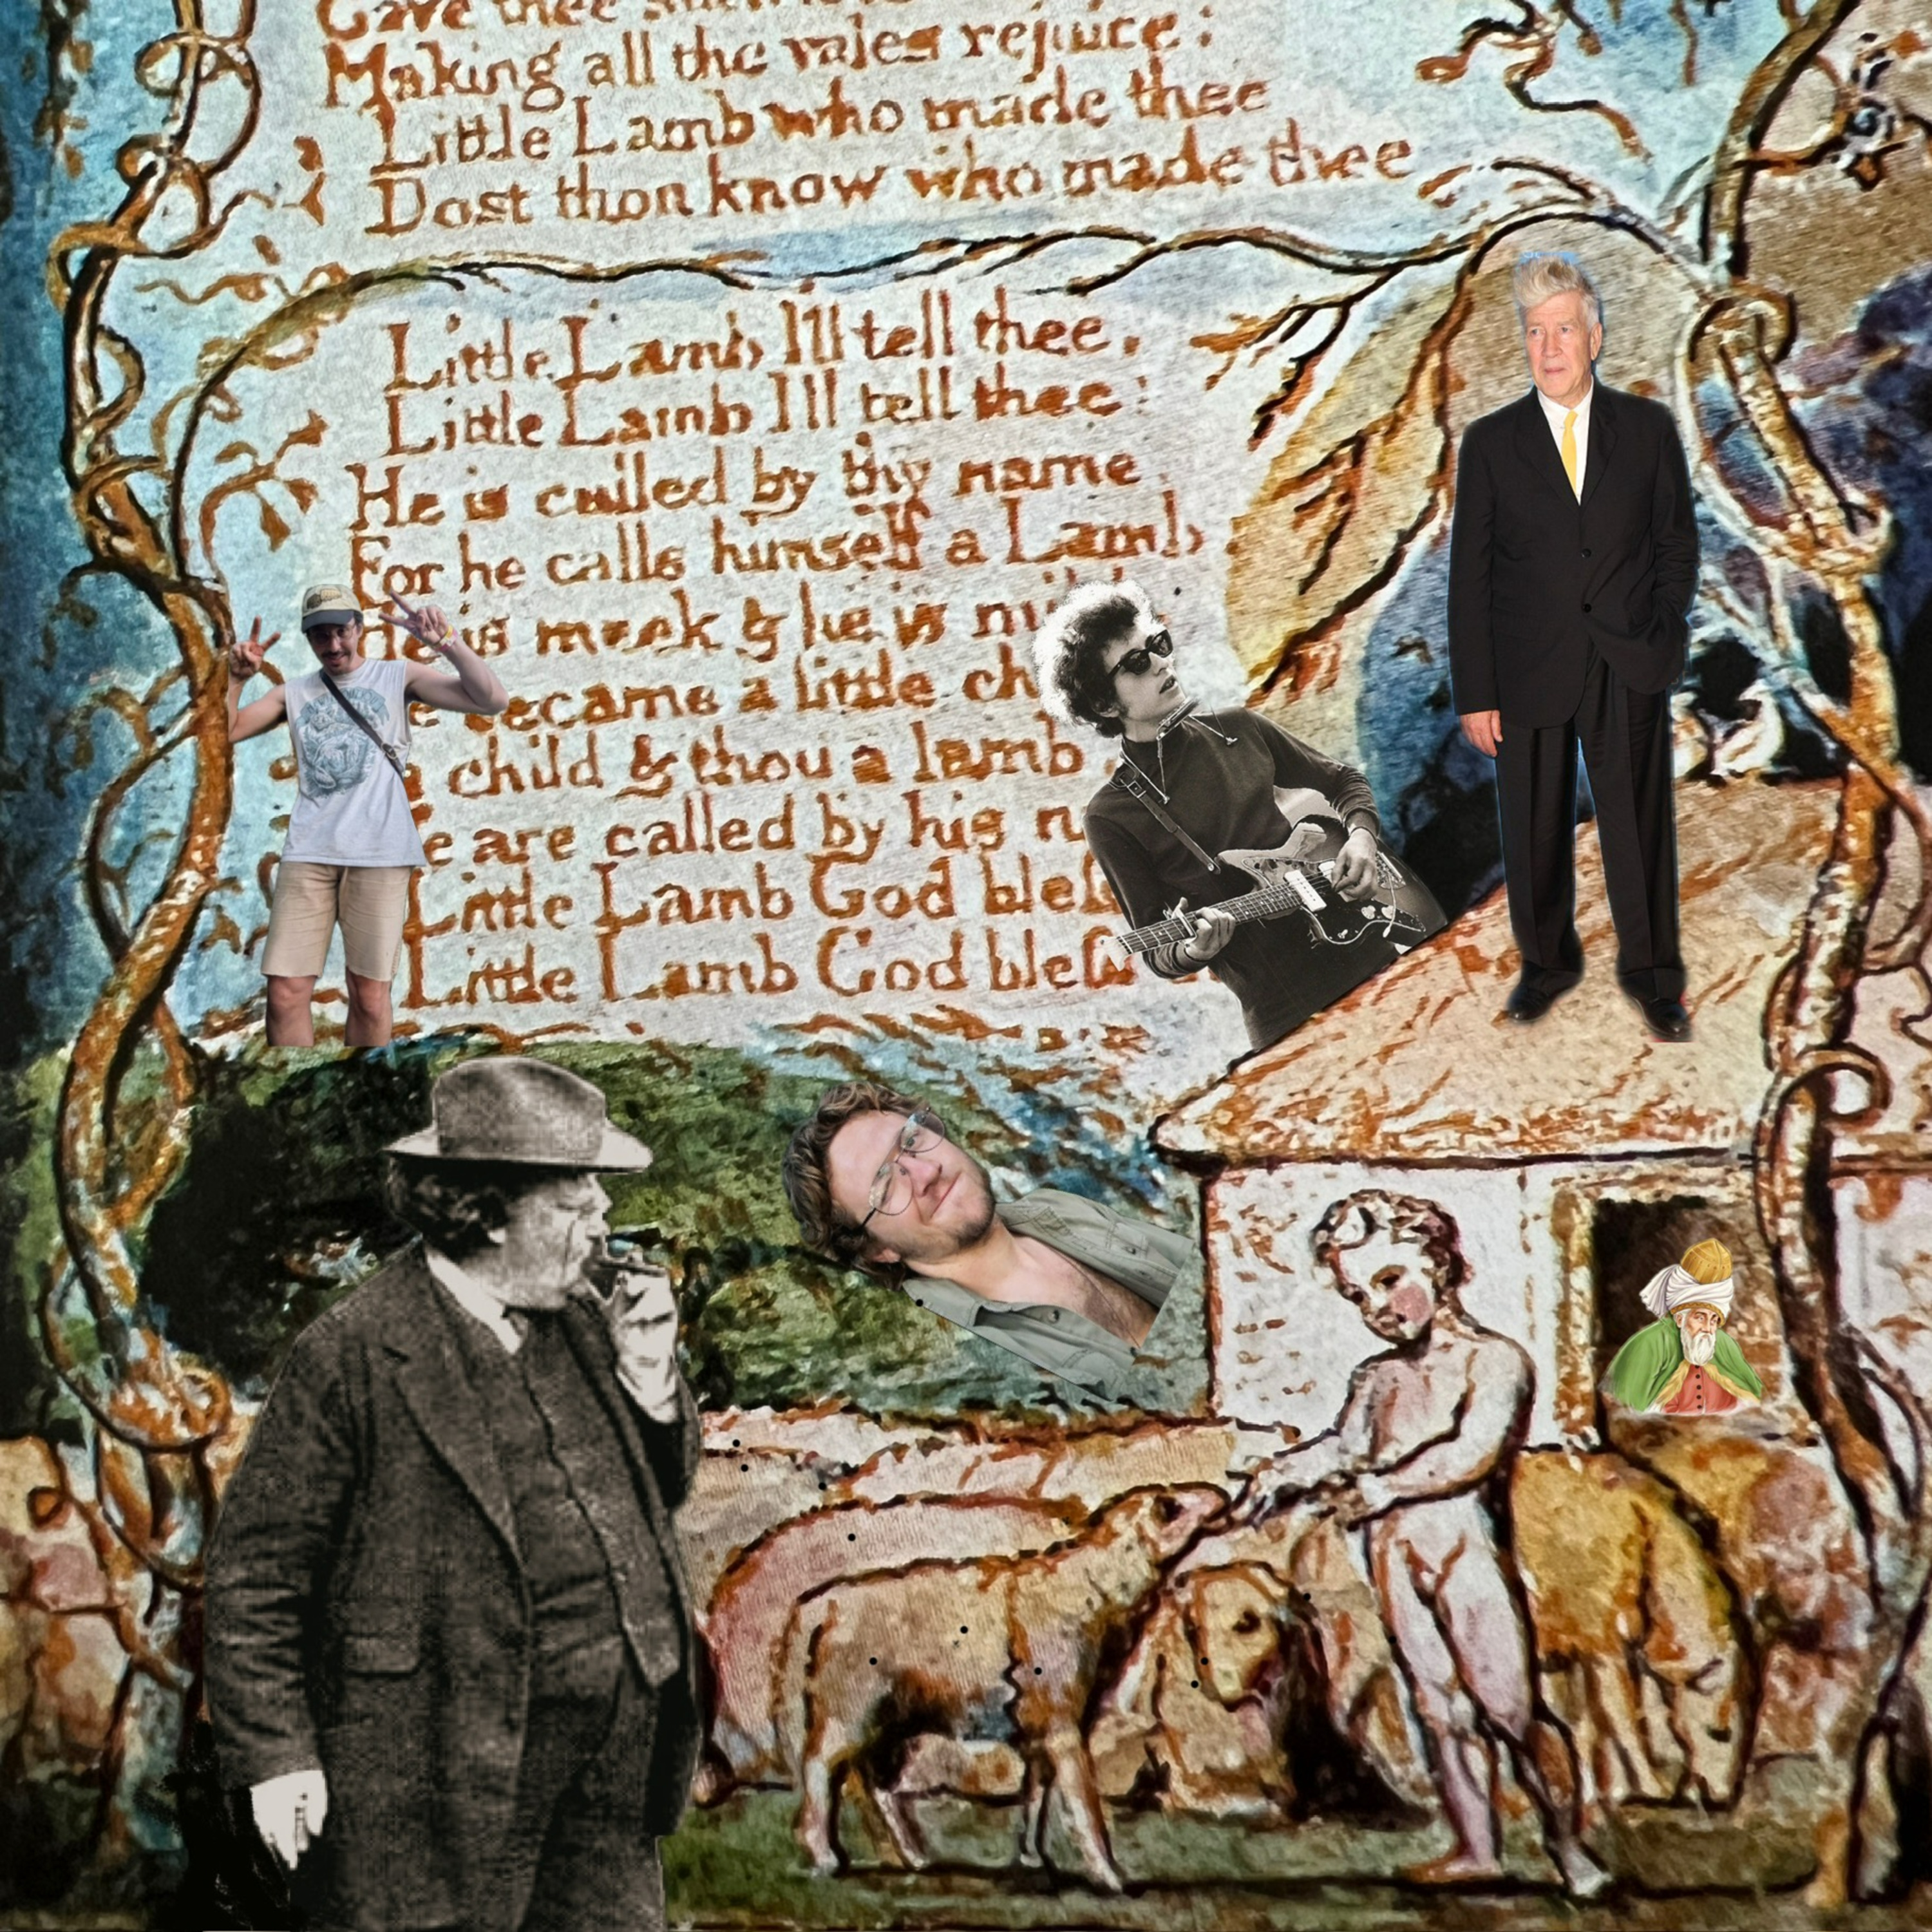 Gave thee
Making all the vales rejoice:
Little Lamb who made thee
Dost thou know who made thee
Little Lamb I'll tell thee,
Little Lamb I'll tell thee:
He is called by thy name,
For he calls himself a Lamb:
is meek & he is
became a little
child & thou a lamb
are called by his
Little Lamb God
Little Lamb God